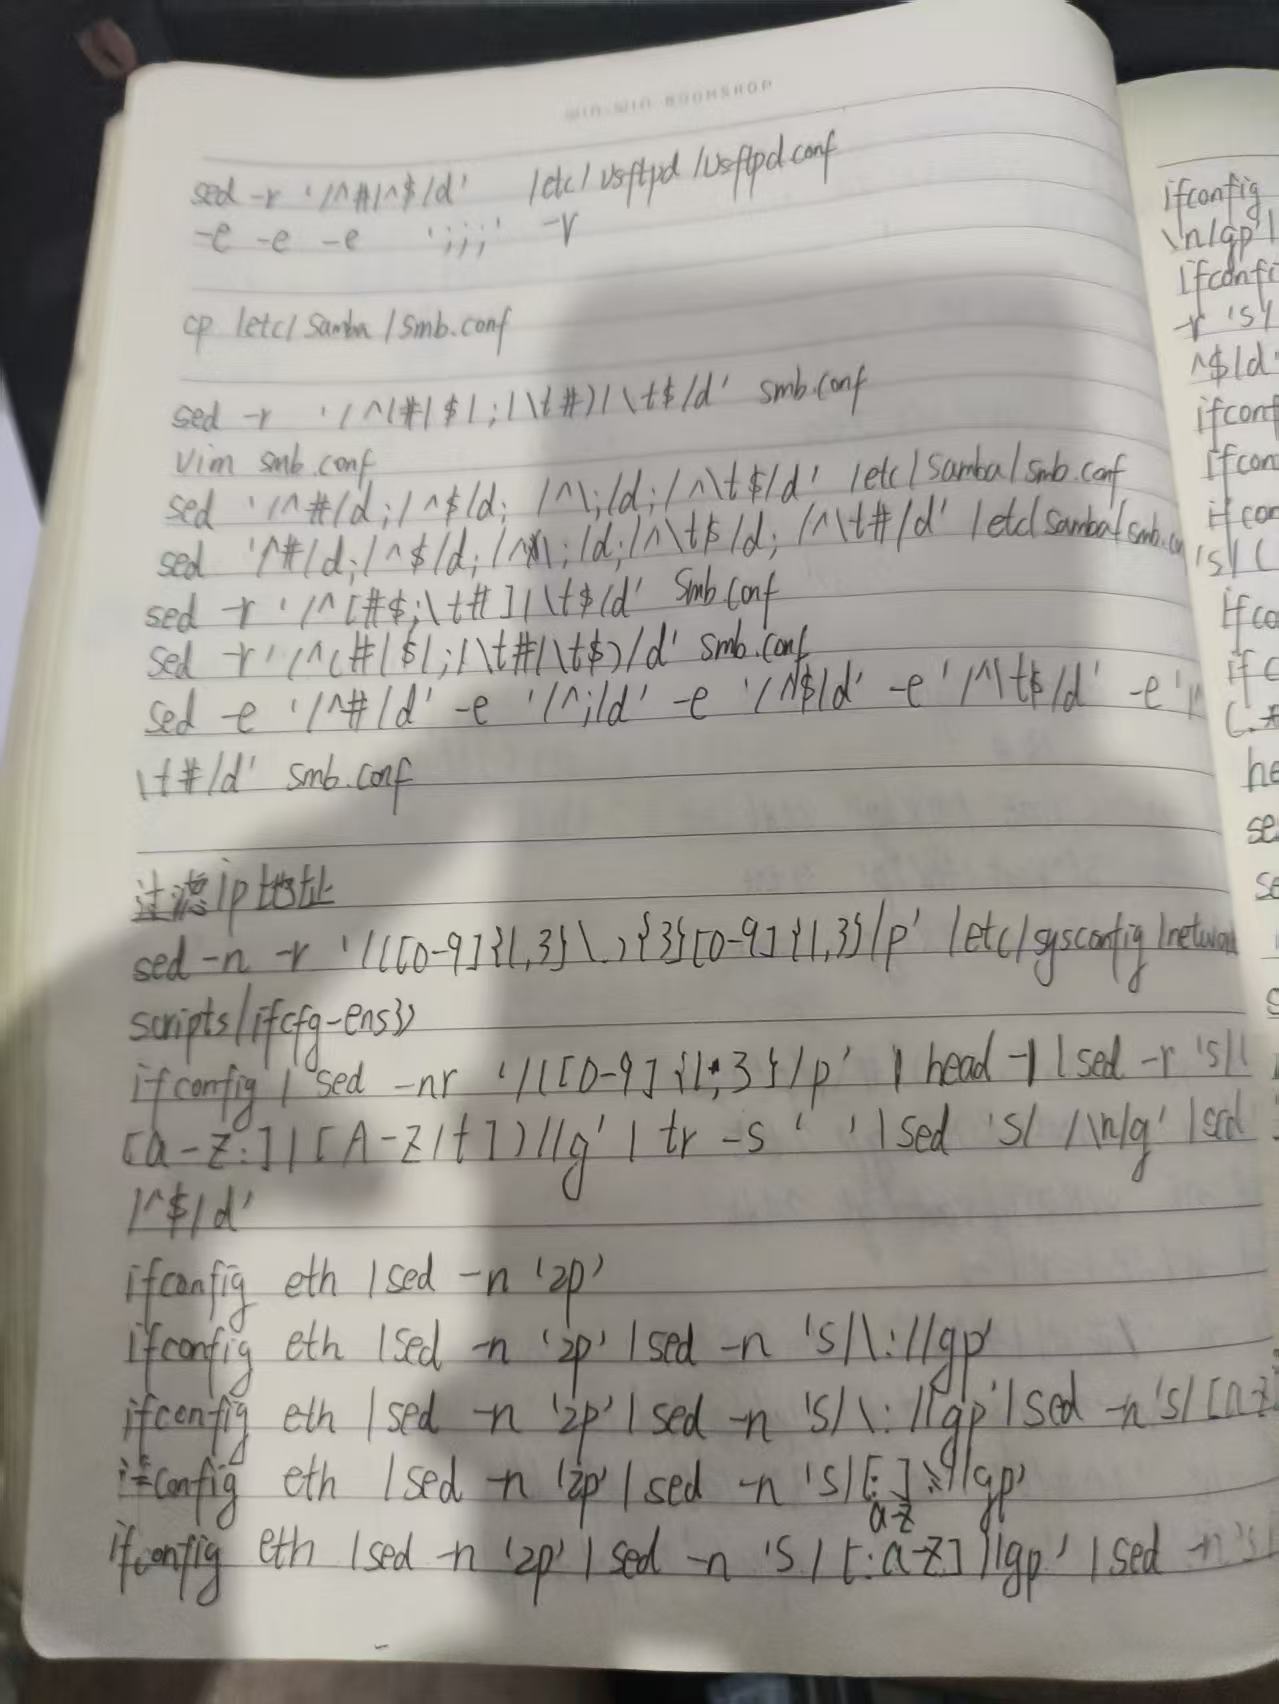 WIN-WIN BOOKSHOP
sed -r '/^#|^$/d' /etc/vsftpd/vsftpd.conf
-e -e -e ';;;' -r
cp /etc/samba/smb.conf
sed -r '/^(#|$|;|\t#)|\t$/d' smb.conf
vim smb.conf
sed '/^#/d;/^$/d; /^\;/d;/^\t$/d' /etc/samba/smb.conf
sed '/^#/d;/^$/d;/^\;/d;/^\t$/d; /^\t#/d' /etc/samba/smb.co
sed -r '/^[#$;\t#]|\t$/d' smb.conf
sed -r '/^(#|$|;|\t#|\t$)/d' smb.conf
sed -e '/^#/d' -e '/^;/d' -e '/^$/d' -e '/^\t$/d' -e '/^
\t#/d' smb.conf
过滤ip地址
sed -n -r '/([0-9]{1,3}\.){3}[0-9]{1,3}/p' /etc/sysconfig/network
scripts/ifcfg-ens33
ifconfig | sed -nr '/([0-9]{1,3}/p' | head -1 | sed -r 's/(
[a-z:]|[A-Z/t])//g' | tr -s ' ' | sed 's/ /\n/g' | sed
/^$/d'
ifconfig eth | sed -n '2p'
ifconfig eth | sed -n '2p' | sed -n 's/\://gp'
ifconfig eth | sed -n '2p' | sed -n 's/\://gp' | sed -n 's/[a-z]
ifconfig eth | sed -n '2p' | sed -n 's/[:]//gp'
a-z
ifconfig eth | sed -n '2p' | sed -n 's/[:a-z]//gp' | sed -n 's/
ifconfig
\n/gp' |
ifconfi
-r 's/
^$/d'
ifconf
ifcon
ifcon
's/(
ifco
if c
(.*
he
se
se